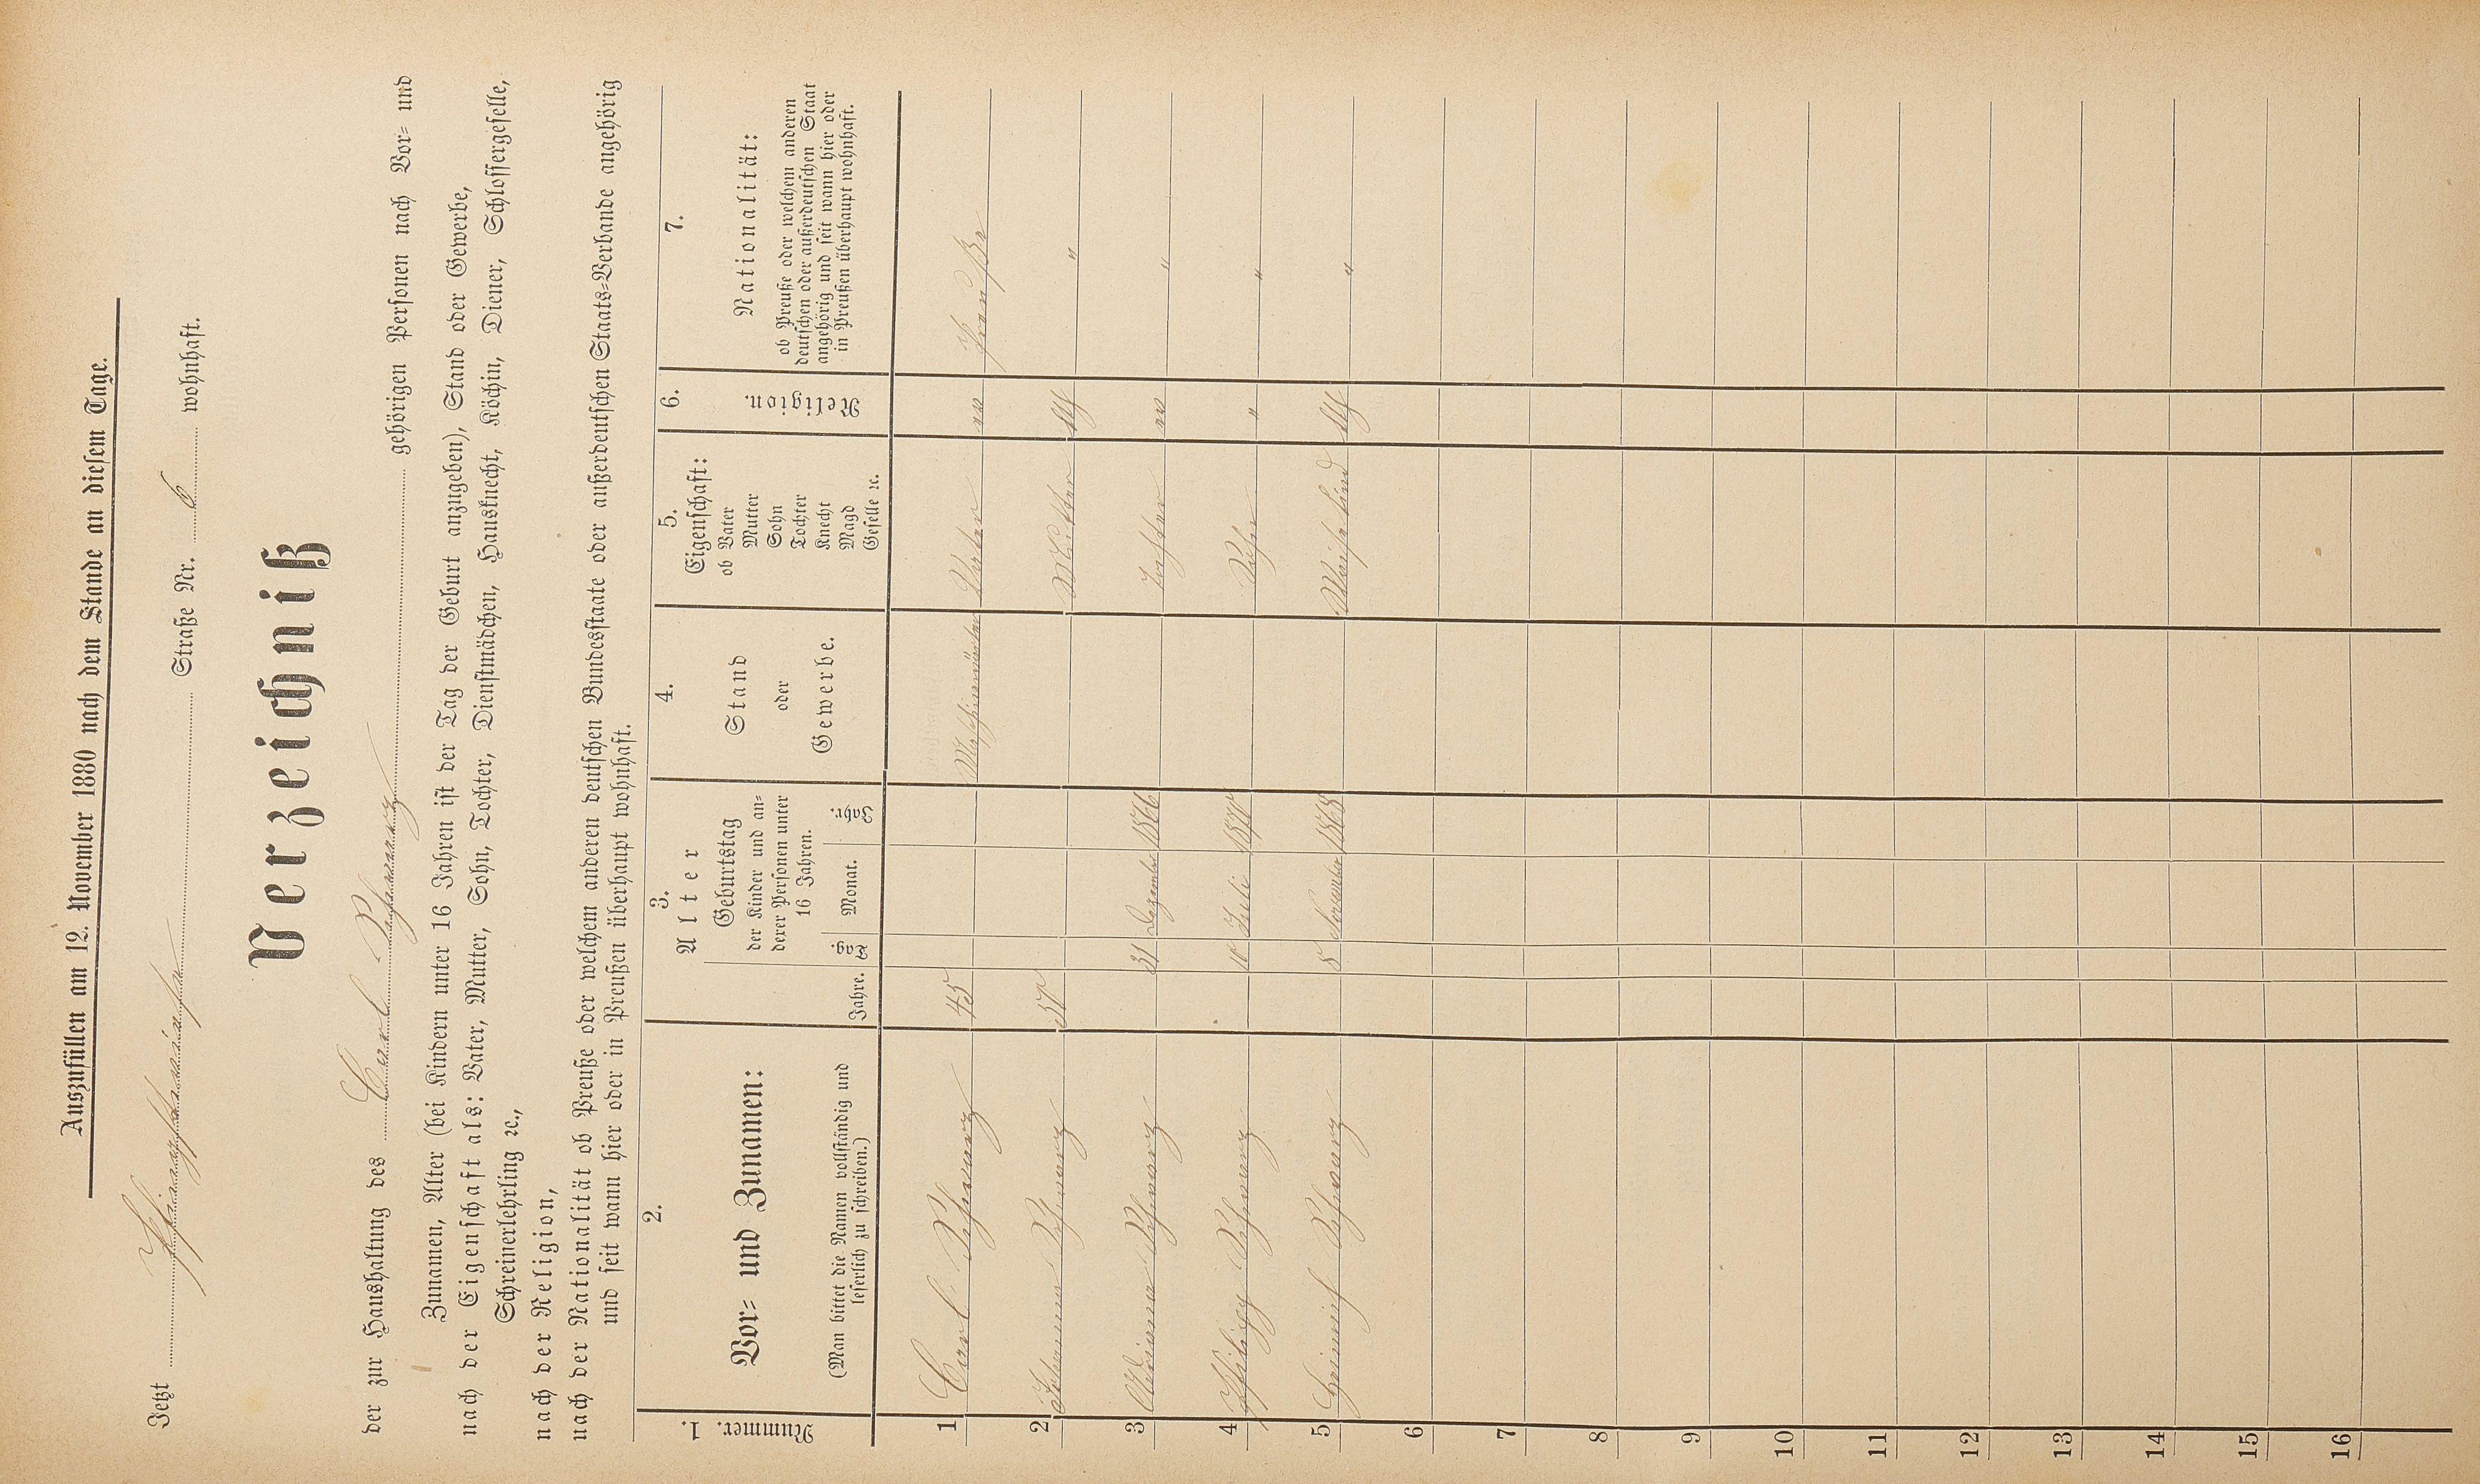 Auszufüllen am 12. November 1880 nach dem Stande an diesem Tage.
Jetzt Straße Nr. 6 wohnhaft.
Verzeichniß
der zur Haushaltung des Carl Schwarz gehörigen Personen nach Vor- und
Zunamen, Alter (bei Kindern unter 16 Jahren ist der Tag der Geburt anzugeben), Stand oder Gewerbe,
nach der Eigenschaft als: Vater, Mutter, Sohn, Tochter, Dienstmädchen, Hausknecht, Köchin, Diener, Schlossergeselle,
Schreinerlehrling ꝛc.,
nach der Religion,
nach der Nationalität ob Preuße oder welchem anderen deutschen Bundesstaate oder außerdeutschen Staats-Verbande angehörig
und seit wann hier oder in Preußen überhaupt wohnhaft.
1. Nummer.
2.
Vor- und Zunamen:
(Man bittet die Namen vollständig und
leserlich zu schreiben.)
3.
Alter
Jahre.
Geburtstag
der Kinder und an-
derer Personen unter
16 Jahren.
Tag. Monat. Jahr.
4.
Stand
oder
Gewerbe.
5.
Eigenschaft:
ob Vater
Mutter
Sohn
Tochter
Knecht
Magd
Geselle ꝛc.
6.
Religion.
7.
Nationalität:
ob Preuße oder welchem anderen
deutschen oder außerdeutschen Staat
angehörig und seit wann hier oder
in Preußen überhaupt wohnhaft.
1 Carl Schwarz 45 Vater ev Preuße
2 Schwarz Mutter kth "
3 Schwarz 31 Dezember 1866 Tochter ev "
4 Philipp Schwarz 10 Juli Sohn " "
5 Heinrich Schwarz 8 November 1868 kth "
6
7
8
9
10
11
12
13
14
15
16